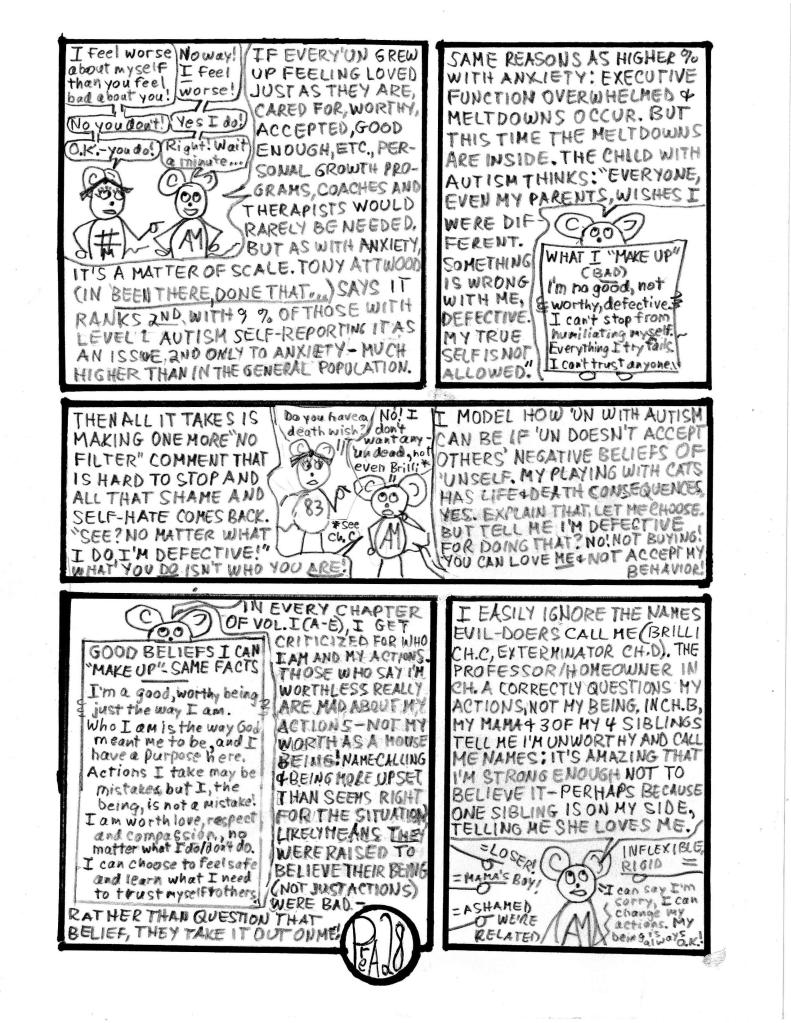 I feel worse
about myself
than you feel
bad about you!
No way!
I feel
worse!
No you don't!
Yes I do!
O.K.-you do!
Right! Wait
a minute...
#
AM
IF EVERY'UN GREW
UP FEELING LOVED
JUST AS THEY ARE,
CARED FOR, WORTHY,
ACCEPTED, GOOD
ENOUGH, ETC., PER-
SONAL GROWTH PRO-
GRAMS, COACHES AND
THERAPISTS WOULD
RARELY BE NEEDED.
BUT AS WITH ANXIETY,
IT'S A MATTER OF SCALE. TONY ATTWOOD
(IN BEEN THERE, DONE THAT...) SAYS IT
RANKS 2ND, WITH 9 % OF THOSE WITH
LEVEL 1 AUTISM SELF-REPORTING IT AS
AN ISSUE, 2ND ONLY TO ANXIETY - MUCH
HIGHER THAN IN THE GENERAL POPULATION.
SAME REASONS AS HIGHER %
WITH ANXIETY: EXECUTIVE
FUNCTION OVERWHELMED &
MELTDOWNS OCCUR. BUT
THIS TIME THE MELTDOWNS
ARE INSIDE. THE CHILD WITH
AUTISM THINKS: "EVERYONE,
EVEN MY PARENTS, WISHES I
WERE DIF-
FERENT.
SOMETHING
IS WRONG
WITH ME,
DEFECTIVE.
MY TRUE
SELF IS NOT
ALLOWED."
WHAT I "MAKE UP"
(BAD)
I'm no good, not
worthy, defective.
I can't stop from
humiliating myself.
Everything I try fails.
I can't trust anyone.
THEN ALL IT TAKES IS
MAKING ONE MORE "NO
FILTER" COMMENT THAT
IS HARD TO STOP AND
ALL THAT SHAME AND
SELF-HATE COMES BACK.
"SEE? NO MATTER WHAT
I DO, I'M DEFECTIVE!"
WHAT YOU DO ISN'T WHO YOU ARE!
Do you have a
death wish?
No! I
don't
want any-
'un dead, not
even Brilli*
83
*See
Ch. C
AM
I MODEL HOW 'UN WITH AUTISM
CAN BE IF 'UN DOESN'T ACCEPT
OTHERS' NEGATIVE BELIEFS OF
'UNSELF. MY PLAYING WITH CATS
HAS LIFE & DEATH CONSEQUENCES,
YES. EXPLAIN THAT, LET ME CHOOSE.
BUT TELL ME I'M DEFECTIVE
FOR DOING THAT? NO! NOT BUYING!
YOU CAN LOVE ME & NOT ACCEPT MY
BEHAVIOR!
GOOD BELIEFS I CAN
"MAKE UP" - SAME FACTS
I'm a good, worthy being
just the way I am.
Who I am is the way God
meant me to be, and I
have a purpose here.
Actions I take may be
mistakes, but I, the
being, is not a mistake!
I am worth love, respect
and compassion, no
matter what I do/don't do.
I can choose to feel safe
and learn what I need
to trust myself & others.
IN EVERY CHAPTER
OF VOL. I (A-E), I GET
CRITICIZED FOR WHO
I AM AND MY ACTIONS.
THOSE WHO SAY I'M
WORTHLESS REALLY
ARE MAD ABOUT MY
ACTIONS - NOT MY
WORTH AS A MOUSE
BEING! NAME CALLING
& BEING MORE UPSET
THAN SEEMS RIGHT
FOR THE SITUATION
LIKELY MEANS THEY
WERE RAISED TO
BELIEVE THEIR BEING
(NOT JUST ACTIONS)
WERE BAD -
RATHER THAN QUESTION THAT
BELIEF, THEY TAKE IT OUT ON ME!
I EASILY IGNORE THE NAMES
EVIL-DOERS CALL ME (BRILLI
CH. C, EXTERMINATOR CH. D). THE
PROFESSOR/HOMEOWNER IN
CH. A CORRECTLY QUESTIONS MY
ACTIONS, NOT MY BEING. IN CH. B,
MY MAMA & 3 OF MY 4 SIBLINGS
TELL ME I'M UNWORTHY AND CALL
ME NAMES; IT'S AMAZING THAT
I'M STRONG ENOUGH NOT TO
BELIEVE IT - PERHAPS BECAUSE
ONE SIBLING IS ON MY SIDE,
TELLING ME SHE LOVES ME.
=LOSER!
=MAMA'S BOY!
=ASHAMED
WE'RE
RELATED
INFLEXIBLE,
RIGID =
AM
I can say I'm
sorry, I can
change my
actions. My
being is
always O.K.!
28